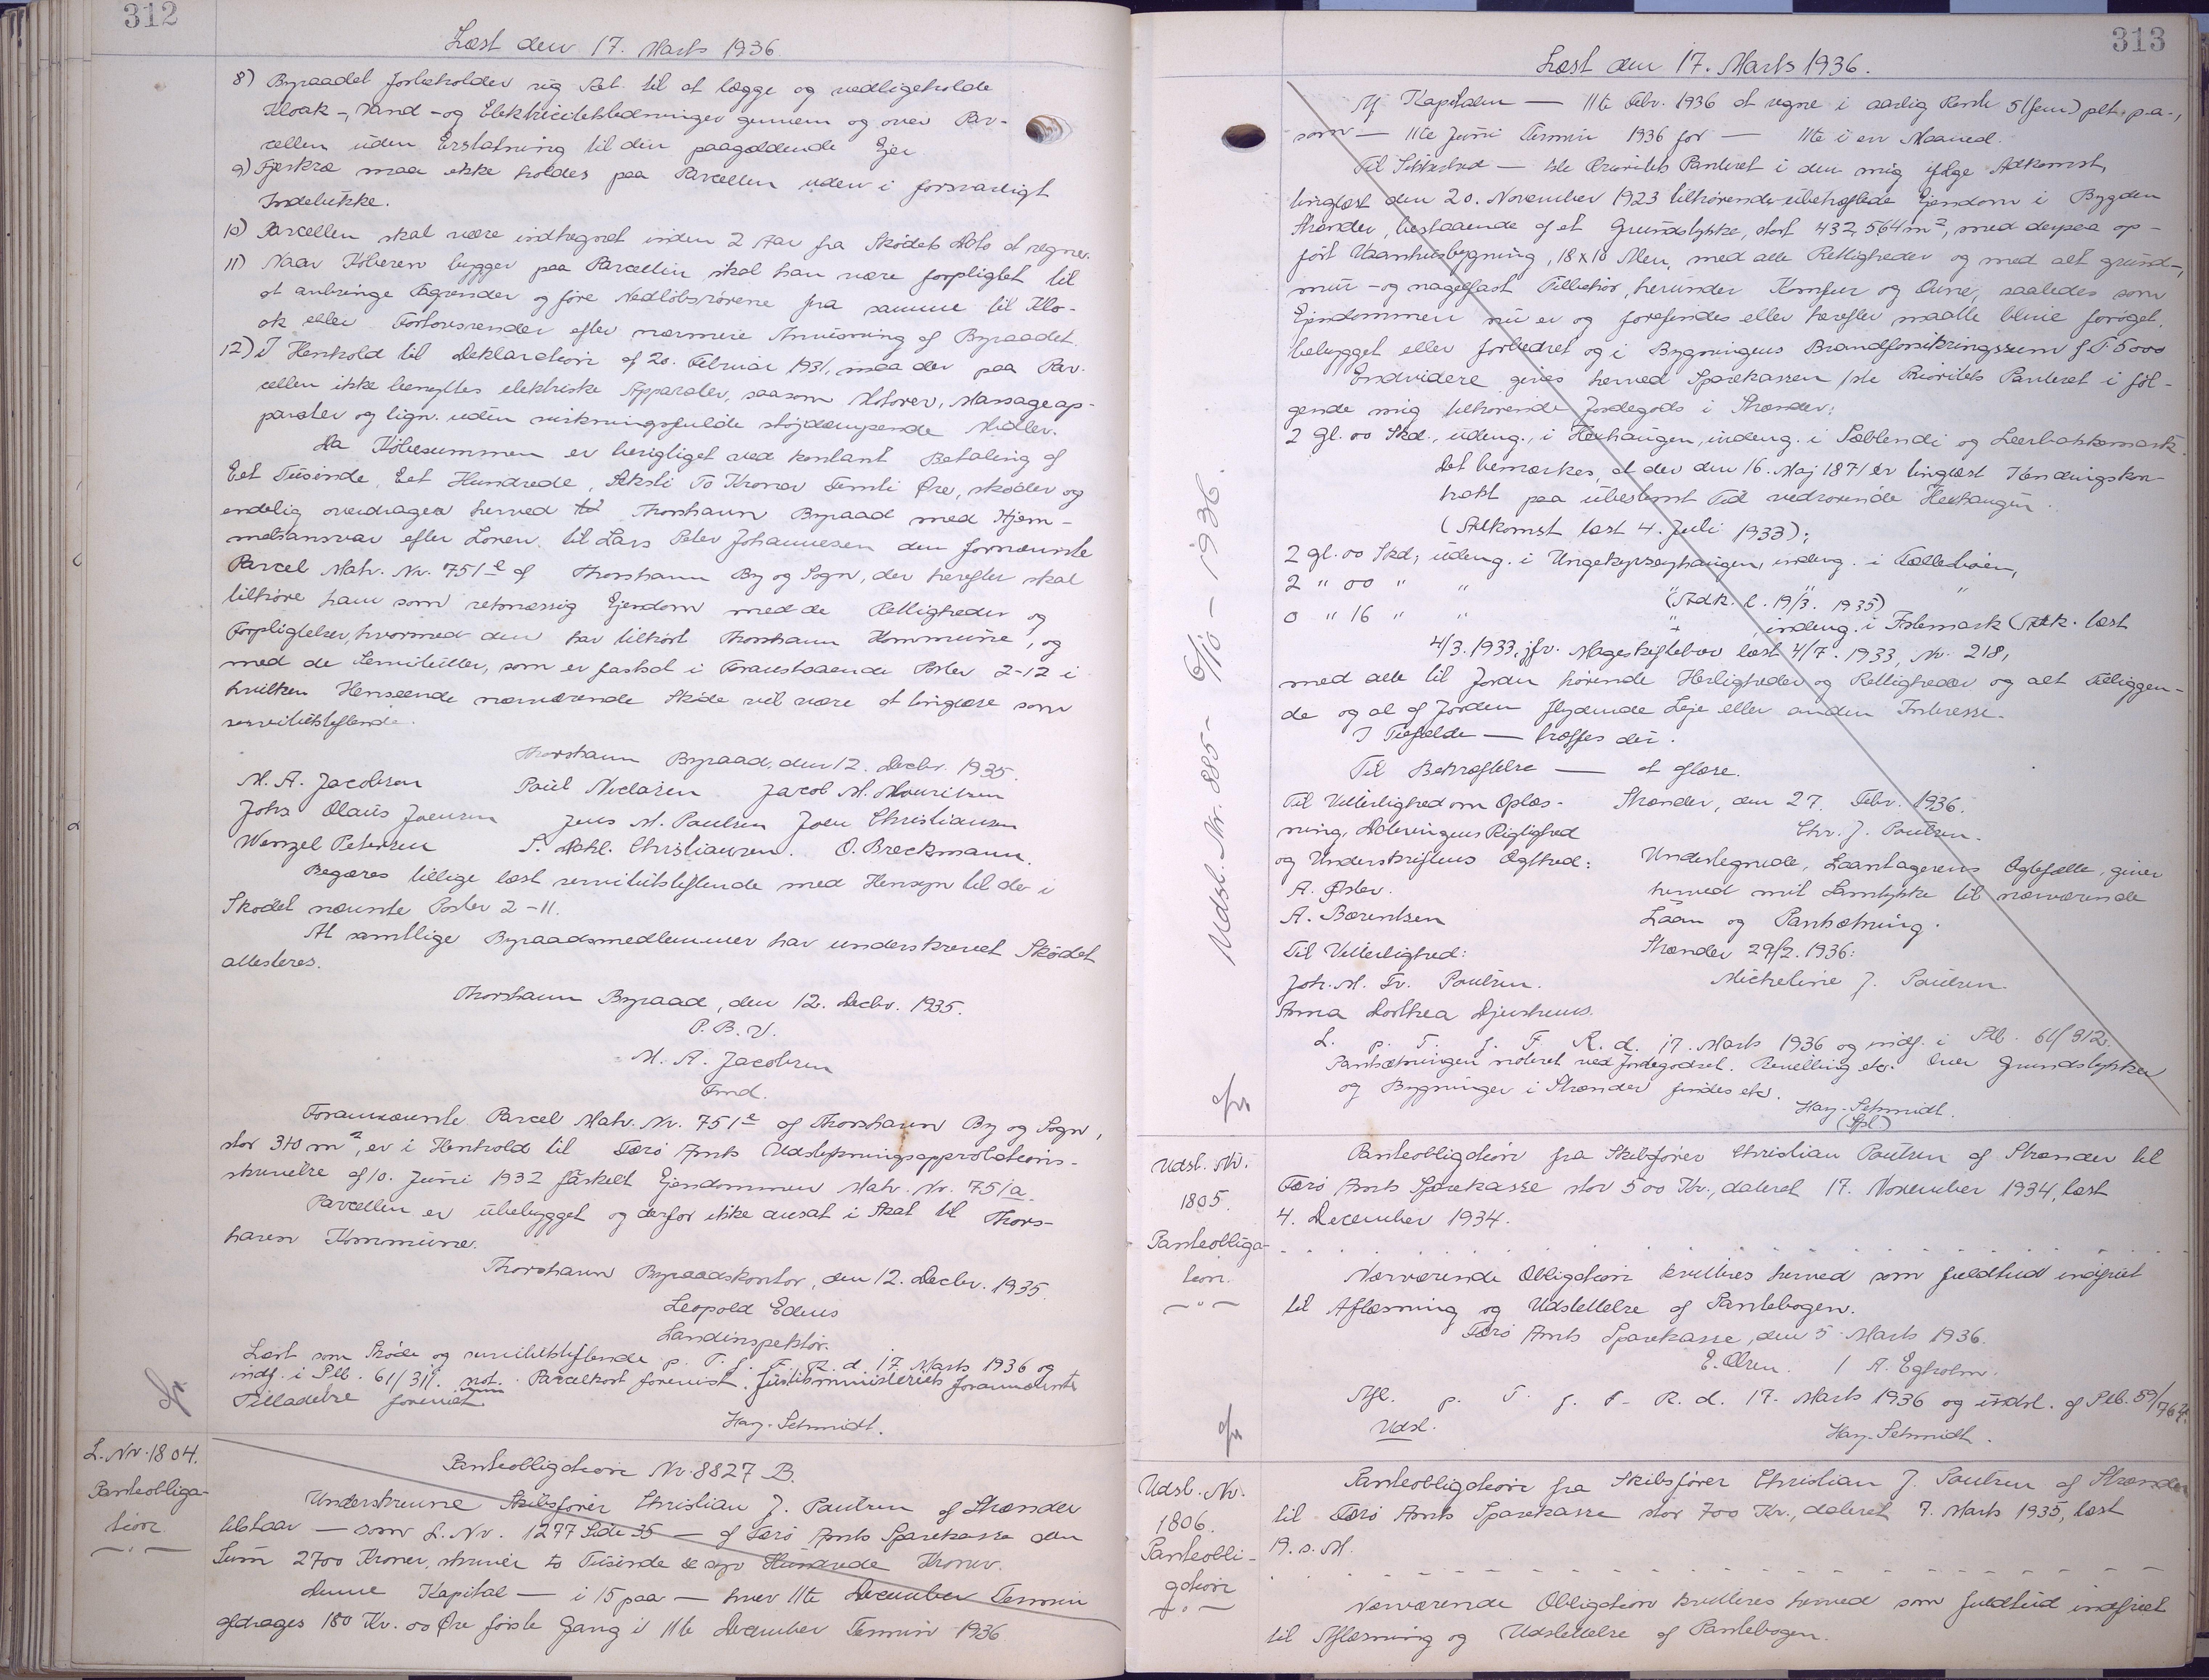 312
Læst den 17. Marts 1936.
8) Byraadet forbeholder sig Ret til at lægge og vedligeholde
Kloak-, Vand- og Elektricitetsledninger gennem og over Par-
cellen uden Erstatning til den paagældende Ejer
9) Fjerkræ maa ikke holdes paa Parcellen uden i forsvarligt
Indelukke.
10) Parcellen skal være indhegnet inden 2 Aar fra Skødets Dato at regne.
11) Naar Køberen bygger paa Parcellen skal han være forpligtet til
at anbringe Tagrender og føre Nedløbsrørene fra samme til Klo-
ak eller Fortovsrender efter nærmere Anvisning af Byraadet.
12) I Henhold til Deklaration af 20. Februar 1931, maa der paa Par-
cellen ikke benyttes elektriske Apparater, saasom Motorer, Massageap-
parater og lign. uden virkningsfulde støjdæmpende Midler.
Da Købesummen er berigtiget ved kontant Betaling af
Eet Tusinde, Eet Hundrede, Seksti To Kroner Femti Øre, skøder og
endelig overdrager herved Thorshavn Byraad med Hjem-
melsansvar efter Loven til Lars Peter Johannesen den fornævnte
Parcel Matr. Nr. 751e af Thorshavn By og Sogn, der herefter skal
tilhøre ham som retmæssig Ejendom med de Rettigheder og
Forpligtelser, hvormed den har tilhørt Thorshavn Kommune, og
med de Servitutter, som er fastsat i Foranstaaende Poster 2-12 i
hvilken Henseende nærværende Skøde vil være at tinglæse som
servitutstiftende.
Thorshavn Byraad, den 12. Decbr. 1935.
M. A. Jacobsen Poul Niclasen Jacob M. Mouritsen
Johs Olaus Joensen Jens M. Poulsen Joen Christiansen
Wenzel Petersen S. Dahl. Christiansen. O. Breckmann.
Begæres tillige læst servitutstiftende med Hensyn til de i
Skødet nævnte Poster 2-11.
At samtlige Byraadsmedlemmer har underskrevet Skødet
attesteres.
Thorshavn Byraad, den 12. Decbr. 1935.
P. B. V.
M. A. Jacobsen
Fmd.
Forannævnte Parcel Matr. Nr. 751e af Thorshavn By og Sogn,
stor 310 m², er i Henhold til Færø Amts Udstykningsapprobations-
skrivelse af 10. Juni 1932 fraskilt Ejendommen Matr. Nr. 751a.
Parcellen er ubebygget og derfor ikke ansat i Skat til Thors-
havn Kommune.
Thorshavn Byraadskontor, den 12. Decbr. 1935.
Leopold Edens
Landinspektør.
Læst som Skøde og servitutstiftende p. T. f. F. R. d. 17. Marts 1936 og
indf. i Ptb. 61/311. not. Parcelkort forevist. Justitsministeriets forannævnte
Tilladelse forevist.
Hag. Schmidt.
L. Nr. 1804.
Panteobliga-
tion.
Panteobligation Nr. 8827 B.
Underskrevne Skibsfører Christian J. Poulsen af Strænder
tilstaar — som L. Nr. 1277 Side 35 — af Færø Amts Sparekasse den
Sum 2700 Kroner, skriver to Tusinde & syv Hundrede Kroner.
Denne Kapital — i 15 paa — hver 11te December Termin
afdrages 180 Kr. 00 Øre første Gang i 11te December Termin 1936
313
Læst den 17. Marts 1936.
Af Kapitalen — 11te Febr. 1936 at regne i aarlig Rente 5 (fem) pCt. p.a.,
som — 11te Juni Termin 1936 for — 11te i en Maaned.
Til Sikkerhed — 1ste Prioritets Panteret i den mig ifølge Adkomst,
tinglæst den 20. November 1923 tilhørende ubehæftede Ejendom i Bygden
Strænder, bestaaende af et Grundstykke, stort 432,564 m², med derpaa op-
ført Vaaanhusbygning, 18 x 10 Alen, med alle Rettigheder og med alt grund-,
mur- og nagelfast Tilbehør, herunder Komfur og Ovne, saaledes som
Ejendommen nu er og forefindes eller herefter maatte blive forøget,
bebygget eller forbedret og i Bygningens Brandforsikringssum f. T. 5000
Endvidere gives herved Sparekassen 1ste Prioritets Panteret i føl-
gende mig tilhørende Jordegods i Strænder:
2 Gl. 00 Skd., udeng., i Heshaugen, indeng. i Sæblendi og Leerbakkemark.
Det bemærkes, at der den 16. Maj 1871 er tinglæst Hændingskon-
trakt paa ubestemt Tid vedrørende Heshaugen.
(Adkomst læst 4. Juli 1933);
2 gl. 00 Skd, udeng. i Ungekyrseyhaugen, indeng. i
2 " 00 " " " "
(Adk. l. 19/3. 1935)
0 " 16 " " ", indeng. i (Adk. læst
4/3. 1933, jfr. Mageskiftebrev læst 4/7. 1933, Nr. 218,
med alle til Jorden hørende Herligheder og Rettigheder og alt Tilliggen-
de og al af Jorden flydende Leje eller anden Interesse.
I Tilfælde — træffes det.
Til Bekræftelse — at aflæse.
Til Vitterlighed om Oplæs- Strænder, den 27. Febr. 1936.
ning, Dateringens Rigtighed Chr. J. Poulsen.
og Underskriftens Ægthed: Undertegnede, Laantagerens Ægtefælle, giver
A. Øster. herved mit Samtykke til nærværende
A. Bærentsen Laan og Pantsætning.
Til Vitterlighed: Strænder 29/2. 1936:
Joh. M. Fr. Poulsen. Micheline J. Poulsen
Anna Dorthea Djurhuus.
L. p. T. f. F. R. d. 17. Marts 1936 og indf. i Ptb. 61/312.
Pantsætningen noteret ved Jordegodset. Revilling etc. Over Grundstykker
og Bygninger i Strænder findes etc.
Hag. Schmidt.
(Spl)
Udsl. Nr. 885 - 6/10 - 1936.
Udsl. Nr.
1805.
Panteobliga-
tion.
Panteobligation fra Skibsfører Christian Poulsen af Strænder til
Færø Amts Sparekasse stor 500 Kr., dateret 17. November 1934, læst
4. December 1934.
Nærværende Obligation kvitteres herved som fuldtud indfriet
til Aflæsning og Udslettelse af Pantebogen.
Færø Amts Sparekasse, den 5. Marts 1936.
E. Olsen. / A. Egholm.
Afl. p. T. f. F. R. d. 17. Marts 1936 og udsl. af Ptb. 59/764.
Udsl. Hag. Schmidt.
Udsl. Nr.
1806.
Panteobli-
gation
Panteobligation fra Skibsfører Christian J. Poulsen af Strænder
til Færø Amts Sparekasse stor 700 Kr., dateret 7. Marts 1935, læst
19. s. M.
Nærværende Obligation kvitteres herved som fuldtud indfriet
til Aflæsning og Udslettelse af Pantebogen.